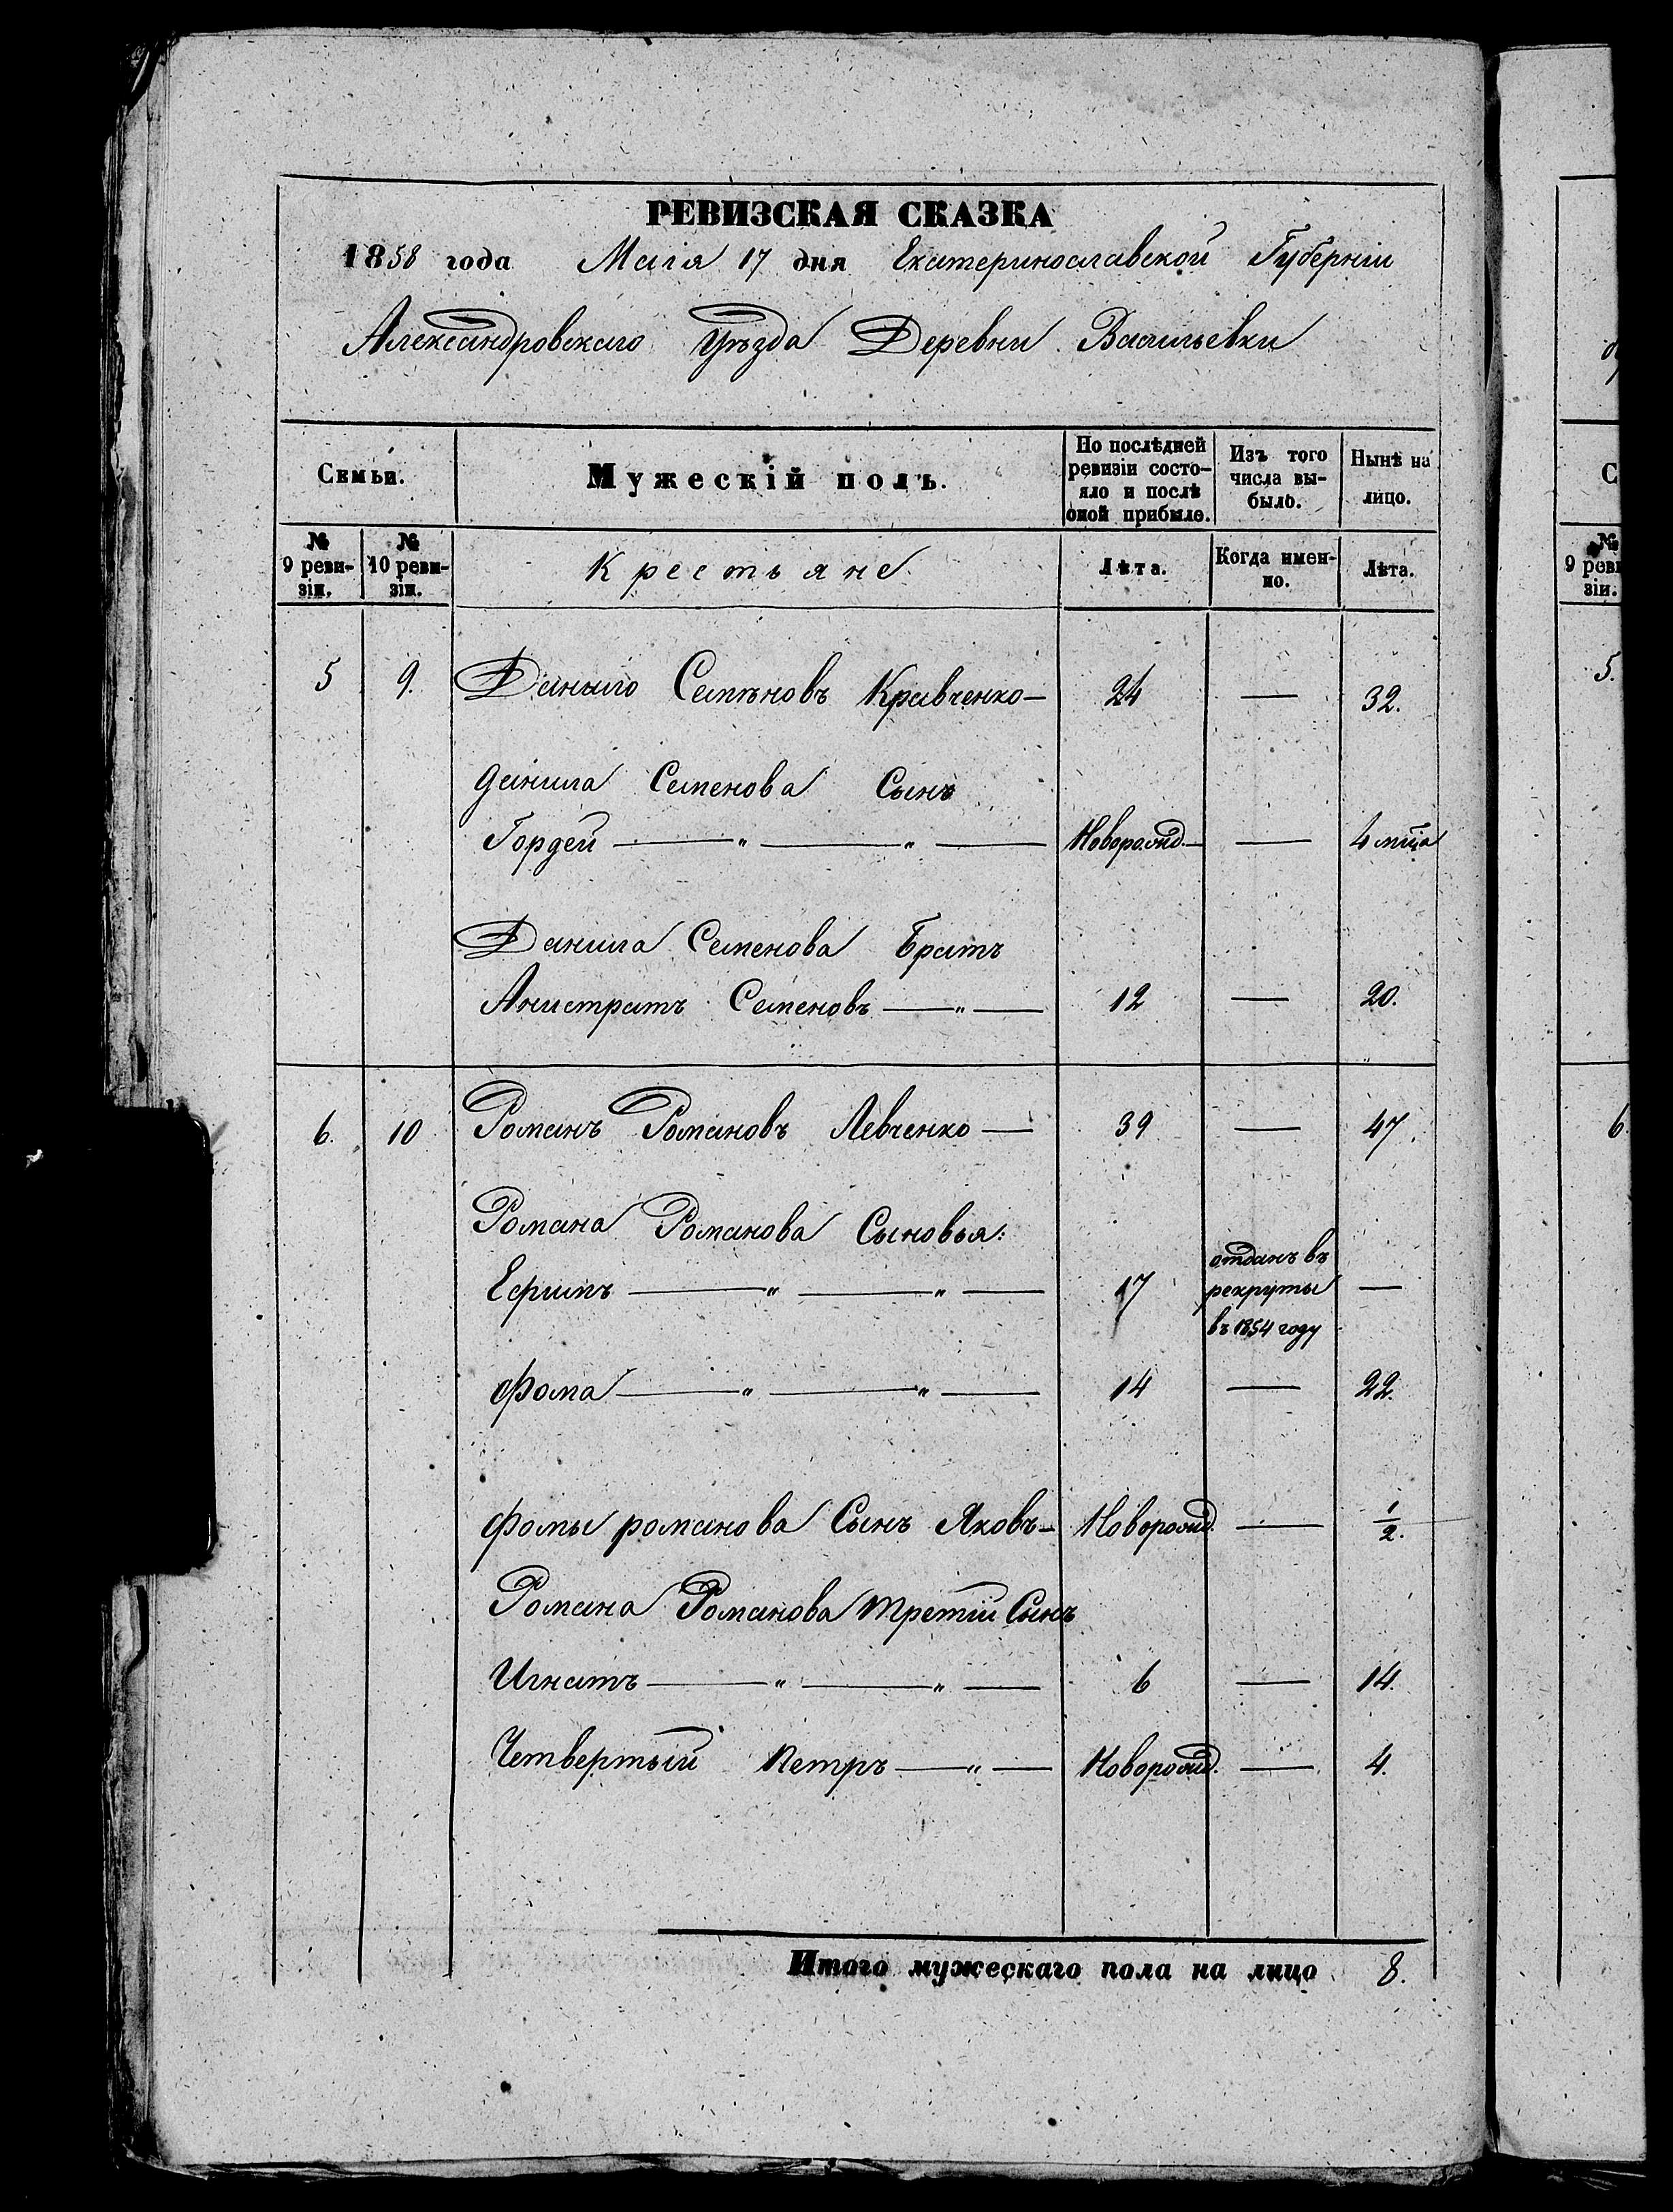 РЕВИЗСКАЯ СКАЗКА
1858 года Маія 17 дня Екатеринославской Губерніи
Александровскаго Уѣзда Деревни Васильевки
Семьи. Мужескій полъ. По послѣдней ревизіи состояло и послѣ оной прибыло. Изъ того числа выбыло. Нынѣ на лицо.
№ 9 ревизіи. № 10 ревизіи. Крестьяне Лѣта. Когда именно. Лѣта.
5 9. Данило Семѣновъ Кравченко — 24 — 32.
Данила Семенова Сынъ
Гордей — " — " — Новорожд. — — 4 мца
Данила Семенова Братъ
Анистратъ Семеновъ — " — 12 — 20.
6. 10 Романъ Романовъ Левченко — 39 — 47.
Романа Романова Сыновья:
Ефимъ — " — " — 17 отданъ въ рекруты въ 1854 году —
Фома — " — " — 14 — 22.
Фомы романова Сынъ Яковъ — Новорожд. — 1/2.
Романа Романова третій Сынъ
Игнатъ — " — " — 6 — 14.
Четвертый Петръ — " — Новорожд. — 4.
Итого мужескаго пола на лицо 8.
№
9 реви
зіи.
5.
6.